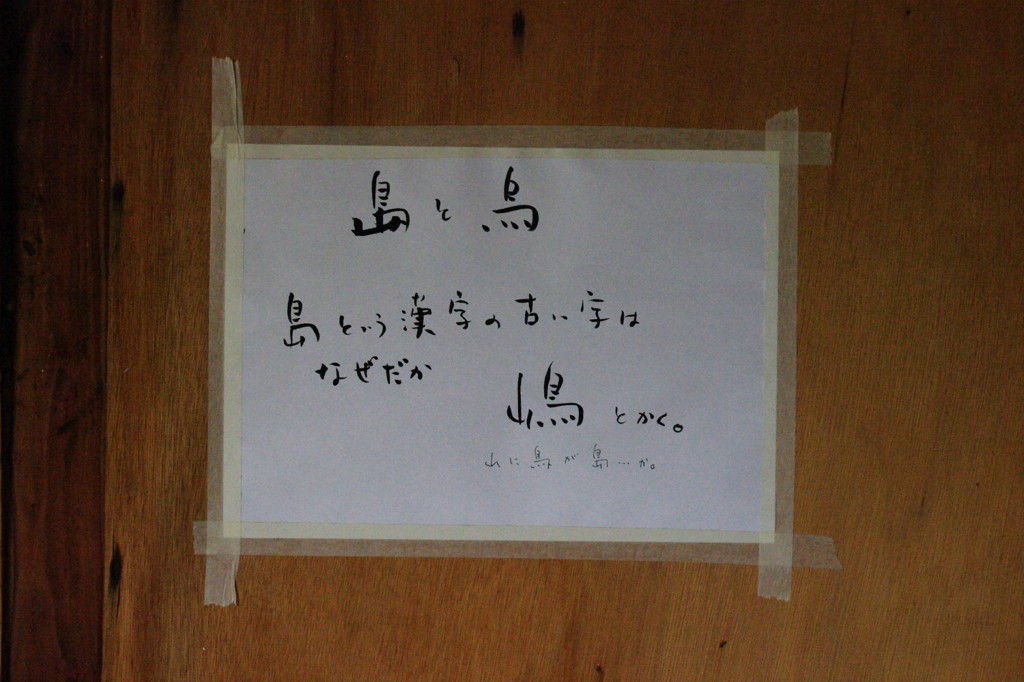 島と鳥
島という漢字の古い字は
なぜだか
嶋とかく。
山に鳥が島…か。